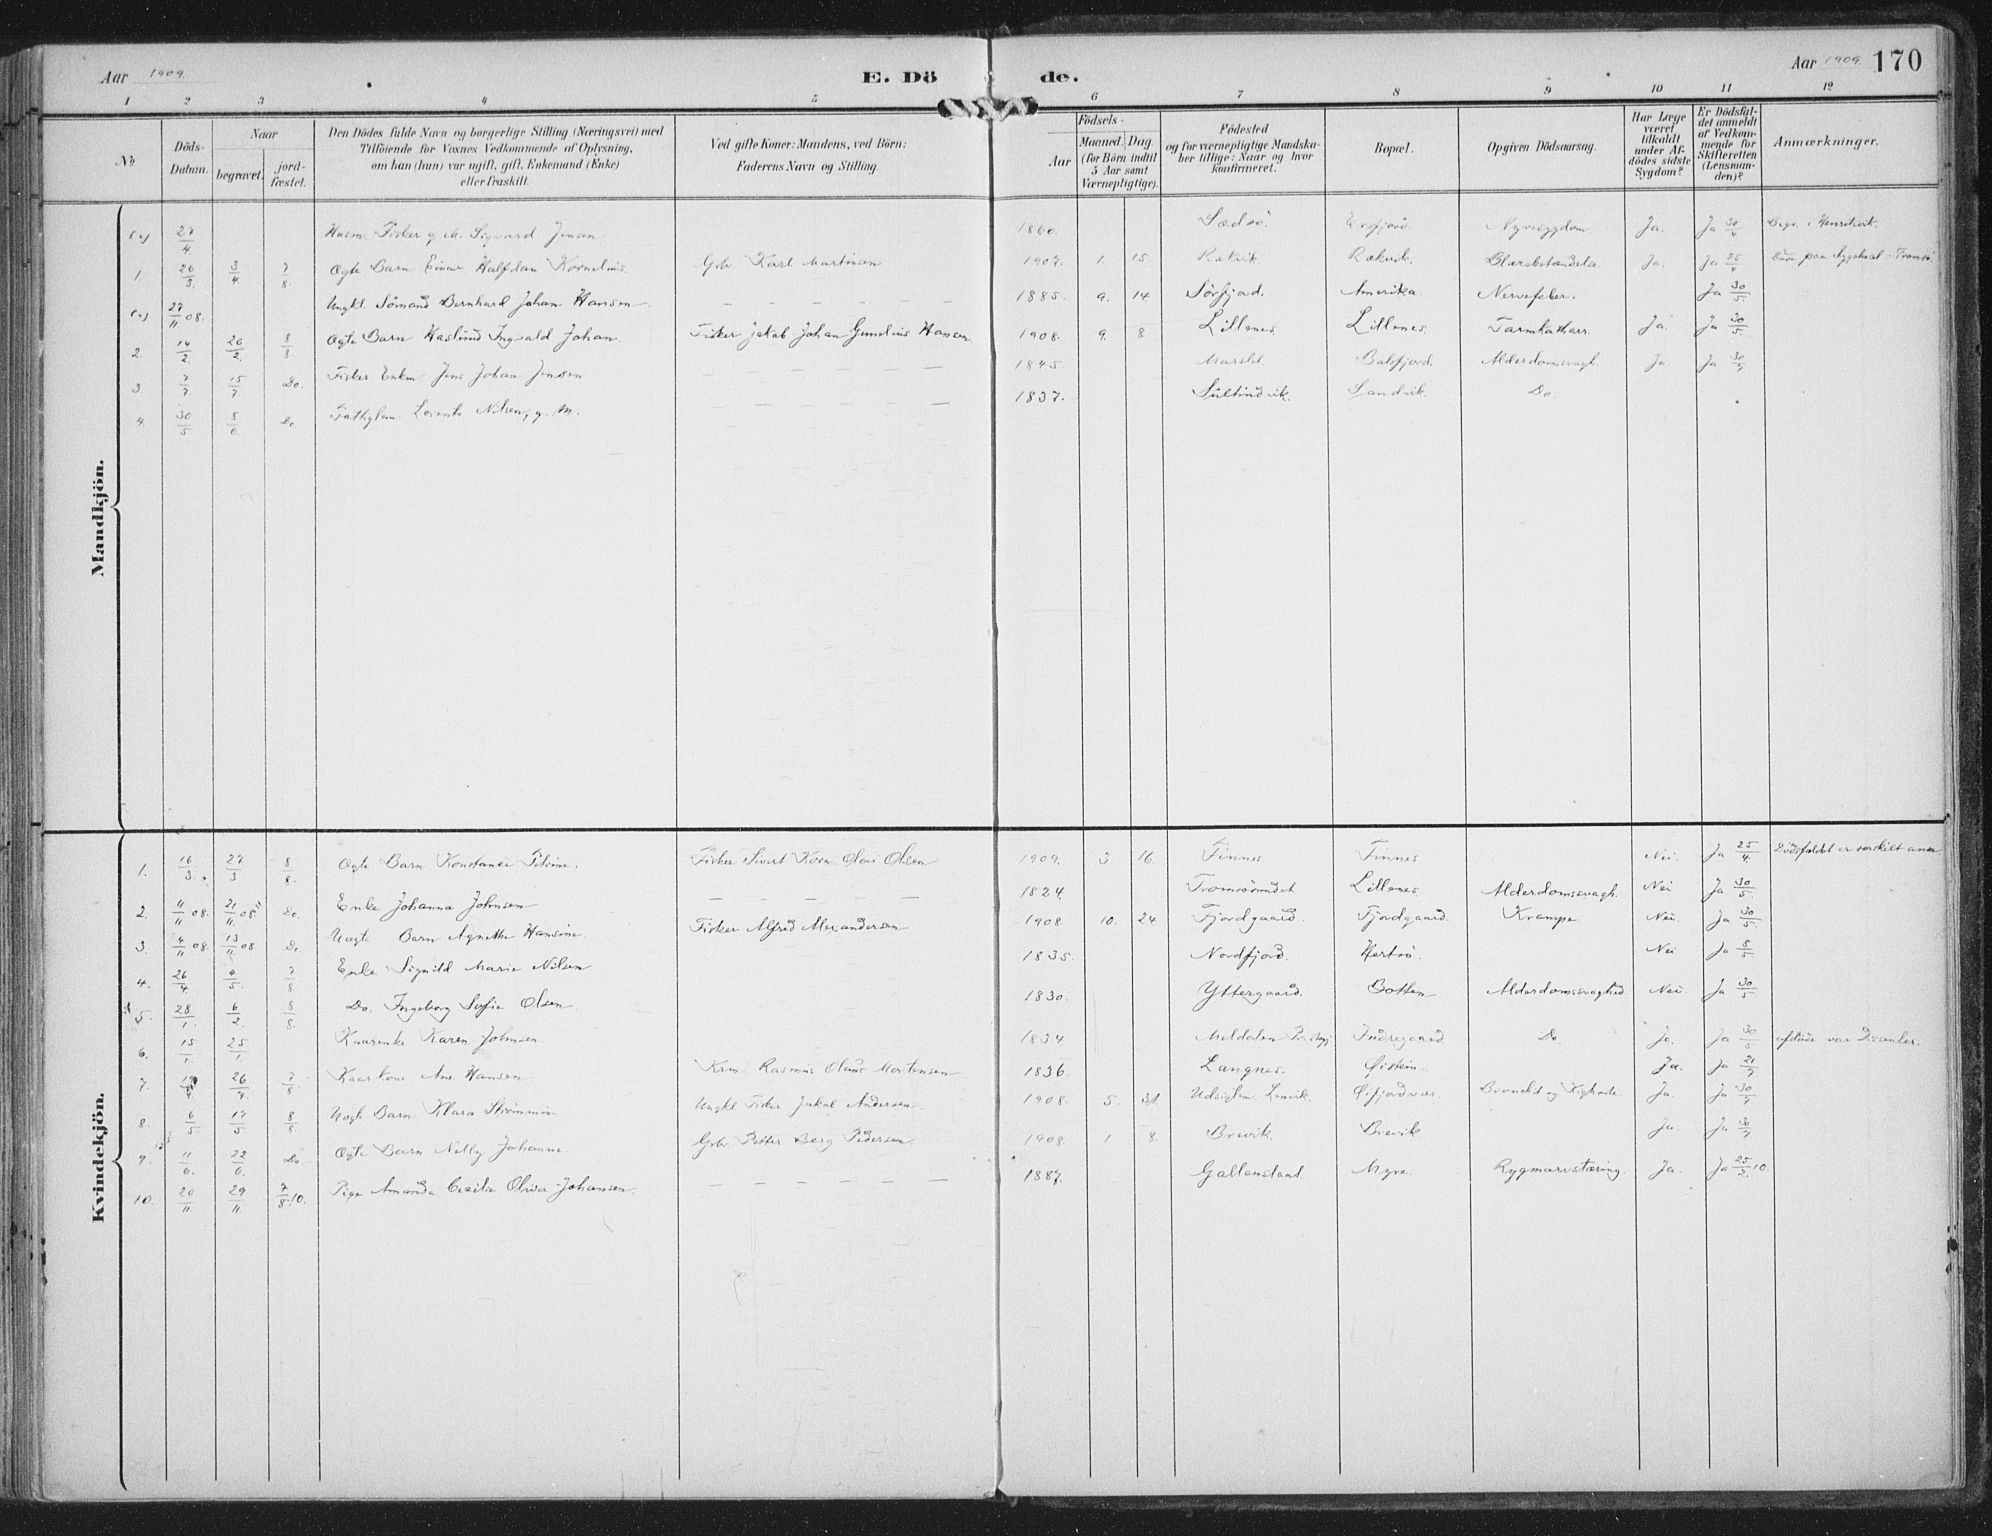 Aar 1909. E. Dö de. Aar 1909. 170
1 2 3 4 5 6 7 8 9 10 11 12
No
Döds-Datum.
Naar
begravet.
jord-fæstet.
Den Dödes fulde Navn og borgerlige Stilling (Næringsvei) med
Tilföiende for Voxnes Vedkommende af Oplysning,
om han (hun) var ugift, gift, Enkemand (Enke)
eller fraskilt.
Ved gifte Koner: Mandens, ved Börn:
Faderens Navn og Stilling.
Födsels-
Aar
Maaned. Dag.
(for Börn indtil
5 Aar samt
Værnepligtige).
Födested
og for værnepligtige Mandska-
ber tillige: Naar og hvor
konfirmeret.
Bopæl.
Opgiven Dödsaarsag.
Har Læge
været
tilkaldt
under Af-
dödes sidste
Sygdom?
Er Dödsfal-
det anmeldt
af Vedkom-
mende for
Skifteretten
(Lensman-
den)?
Anmærkninger.
Mandkjön.
27/4 Fisker g. M. Sigvard Jensen 1860. Nyresygdom Ja. Ja 30/4
1. 26/3 3/4 7/8 Ægte Barn Einar Halfdan Kornelius. Grb. Karl Martinsen 1907. 1. 15. Rækvik. Rækvik. Blærebetændelse Ja. Ja 25/4 Tromsö
27/11 08. Ungkl. Sömand Bernhard Johan Hansen — — — — — 1885. 9. 14 Sörfjord. Amerika. Nervefeber. Ja 30/5.
2. 14/2. 20/2. 8/8 Ægte Barn Haslund Ingvald Johan. Fisker Jakob Johan Hansen 1908. 9. 8 Lillenes Lillenes. Tarmkatharr. Ja. Ja 30/5.
3. 7/7 15/7. Do. Fisker Enkm. Jens Johan Jensen — — — — — 1845 Balsfjord. Alderdomssvagh. Ja Ja 30/9
4. 30/5 8/6 Do. Lorents Nilsen, g. M. — — — — — 1837. Sultindvik. Sandvik. Do.
Kvindekjön.
1. 16/3. 27/3 8/8. Ægte Barn Konstance Fisker Sivert Korn. Olai Olsen 1909. 3. 16. Finnes Finnes Nei. Ja 25/4. Dödsfaldet er særskilt anm.
2. 11/11 08. 21/11. 08 Do. Enke Johanna Johnsen — — — — — — 1824. Tromsösundet Lillenes. Alderdomssvagh. Nei Ja 30/5.
3. 4/11 08. 13/11 08 Do. Uægte Barn Agnethe Hansine Fisker Alfred Alexandersen 1908 10. 24 Fjordgaard. Fjordgaard. Krampe Nei Ja 30/5.
4. 26/4 4/5. 7/8 Enke Signild Marie Nilsen 1835. Nordfjord. Nei Ja 8/5
5. 28/1. 6/2. 8/8. Do. Ingeborg Sofie Olsen 1830. Yttergaard. Botten Alderdomssvaghed Nei. Ja 30/5
6. 15/1. 25/1. Kaarenke Karen Johnsen. 1834 Meldalen Indregaard Do. Ja. Ja 30/5 afdöde var Dissenter.
7. 26/4. 7/8 Kaarkone Ane Hansen Krm. Rasmus Olaus Mortensen 1836. Langnes. Øistein. Ja. Ja 21/9
8. 6/5. 17/5. 8/8. Uægte Barn Klara Ungkl Fisker Jakob Andersen. 1908. 5. 31. Lenvik. Øifjordvær. Bronchit og Kighoste Ja. Ja 30/9.
9. 11/6. 22/6. Do. Ægte Barn Nelly Johanne Grb. Petter Berg Pedersen. 1908. 1 8. Brevik. Brevik Ja. Ja 30/9
10. 20/11. 29/11. 7/8. 10. Pige Amanda Cecilie Olivia Johansen. — — — — — — 1887. Gallenstaat Myre. Rygmarvstæring. Ja. Ja 25/2. 10.